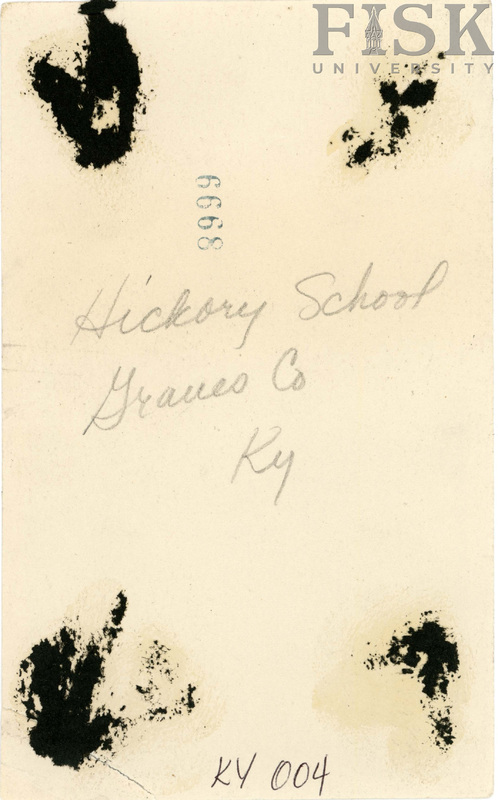 FISK
UNIVERSITY
8999
Hickory School
Graves Co
Ky
KY 004